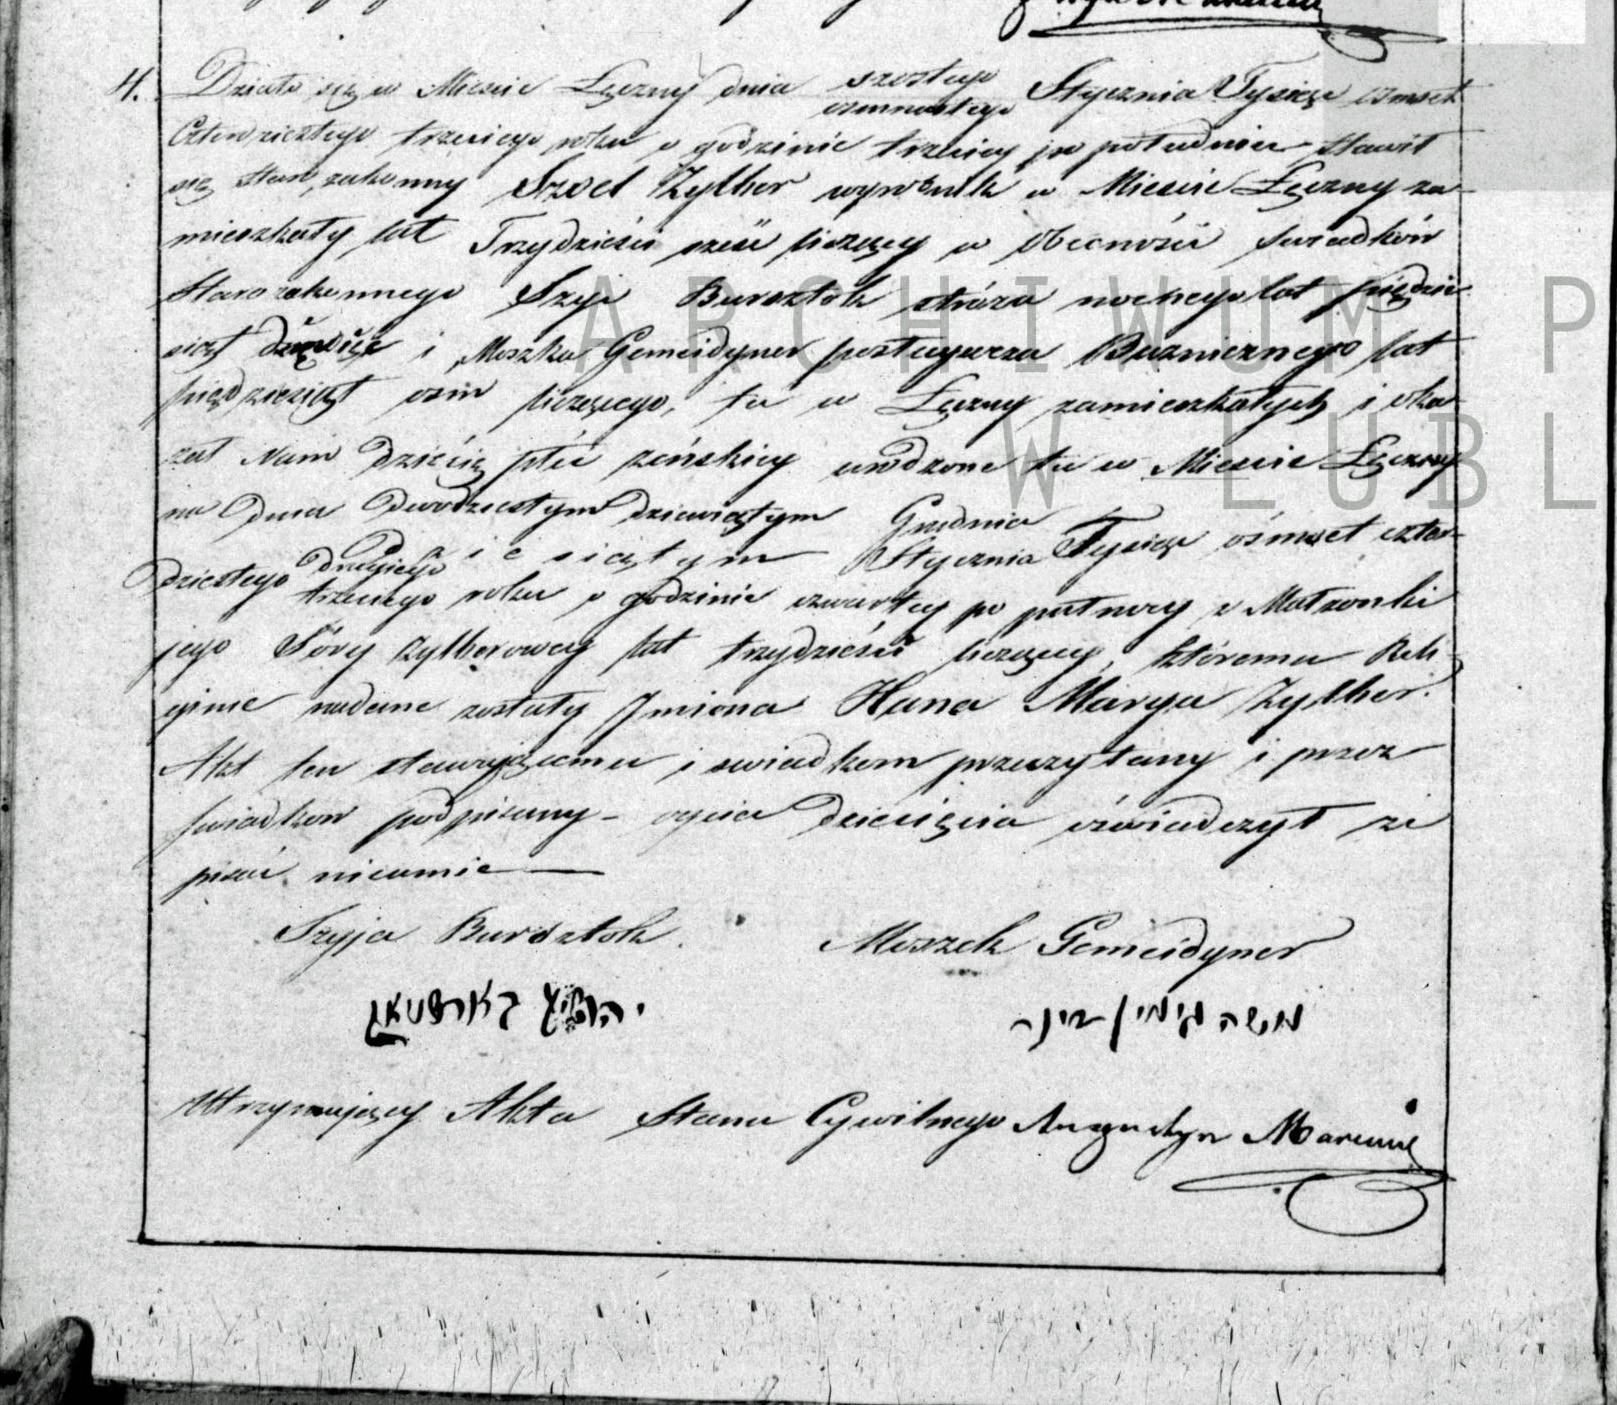 4. Działo się w Mieście Łęczny dnia szostego / osmnastego Stycznia Tysiąc osmset
Czterdziestego trzeciego roku o godzinie trzeciey po południu stawił
się Starozakonny Szoel Zylber wyrobnik w Mieście Łęczny za-
mieszkały lat Trzydzieści sześć liczący w obecności swiadków
Starozakonnego Szyi Bursztok stróża nocnego lat pięździe-
siąt i Moszka Gemeidyner posługacza Buzniczneggo lat
pięcdziesiąt osm liczącego, tu w Łęczny zamieszkałych i oka-
zał Nam dziecię płci żeńskiey urodzone tu w Mieście Łęczny
na Dniu Dwudziestym dziewiątym Grudnia
dziesiątym Stycznia Tysiąc ośmset czter-
dziestego drugiego / trzeciego roku o godzinie czwartey po pułnocy z Małzonki
jego Sory Zylberowey lat trzydzieści liczącey, któremu Reli-
gijne nadane zostały Jmiona Hana Marya Zylber.
Akt ten stawającemu i swiadkom przeczytany i przez
swiadkow podpisany - oyciec dziecięcia oświadczył że
pisać nieumie
Szyja Bursztok. Moszek Gemeidyner
יהושע בארשטאק משה גימיין דינר
Utrzymujący Akta Stanu Cywilnego Augustyn
ARCHIWUM P
W LUBL